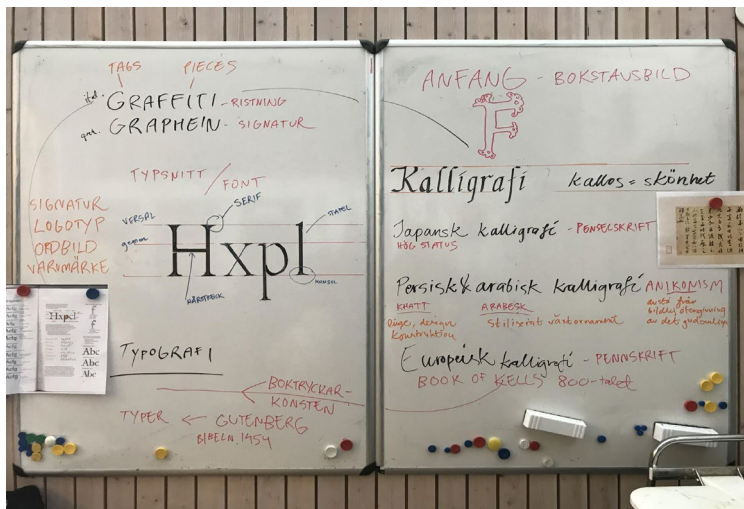 TAGS PIECES
ital. GRAFFITI - RISTNING
grek. GRAPHEIN - SIGNATUR
TYPSNITT / FONT
SERIF
SIGNATUR
LOGOTYP
ORDBILD
VARUMÄRKE
VERSAL
STAPEL
gemen
Hxpl
HÅRSTRECK
Hxpl
Abc
Abc
Abc
TYPOGRAFI
BOKTRYCKAR-
KONSTEN
TYPER ← GUTENBERG
BIBELN 1454
ANFANG - BOKSTAVSBILD
F
Kalligrafi kallos = skönhet
Japansk kalligrafi - PENSELSKRIFT
HÖG STATUS
Persisk & arabisk kalligrafi ANIKONISM
KHATT ARABESK
avstå från
Linjer, design
konstruktion
stiliserat växtornament
bildlig återgivning
av det gudomliga
Europeisk kalligrafi - PENNSKRIFT
BOOK OF KELLS 800-talet